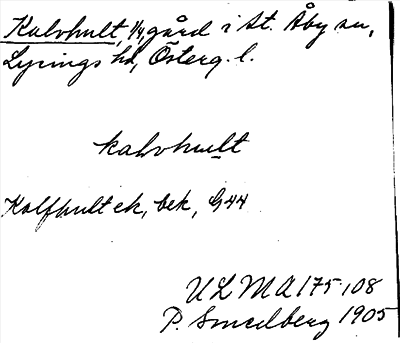 Kalvhult, 1/4 gård i St. Åby sn,
Lysings hd, Österg. l.
kalvhult
Kalfhult ek, bek, G 44
ULMA 175:108
P. Smedberg 1905